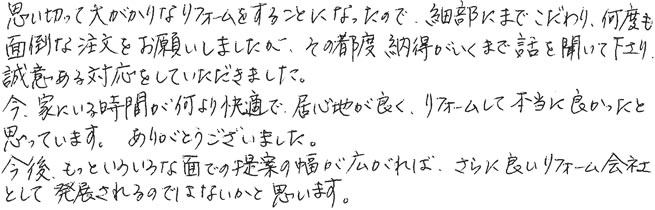 思い切って大がかりなリフォームをすることになったので、細部にまでこだわり、何度も
面倒な注文をお願いしましたが、その都度納得がいくまで話を聞いて下さり、
誠意ある対応をしていただきました。
今、家にいる時間が何より快適で、居心地が良く、リフォームして本当に良かったと
思っています。 ありがとうございました。
今後、もっといろいろな面での提案の幅が広がれば、さらに良いリフォーム会社
として発展されるのではないかと思います。